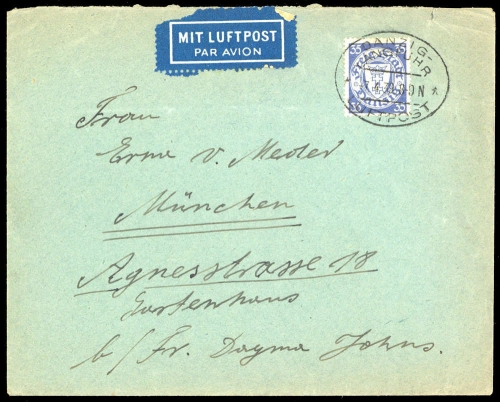 MIT LUFTPOST
PAR AVION
35 35
DANZIG-
LANGFUHR
LUFTPOST
35 35
Frau
Erna v. Meder
München
Agnesstrasse 18
Gartenhaus
b/ Fr. Dagma Johns.